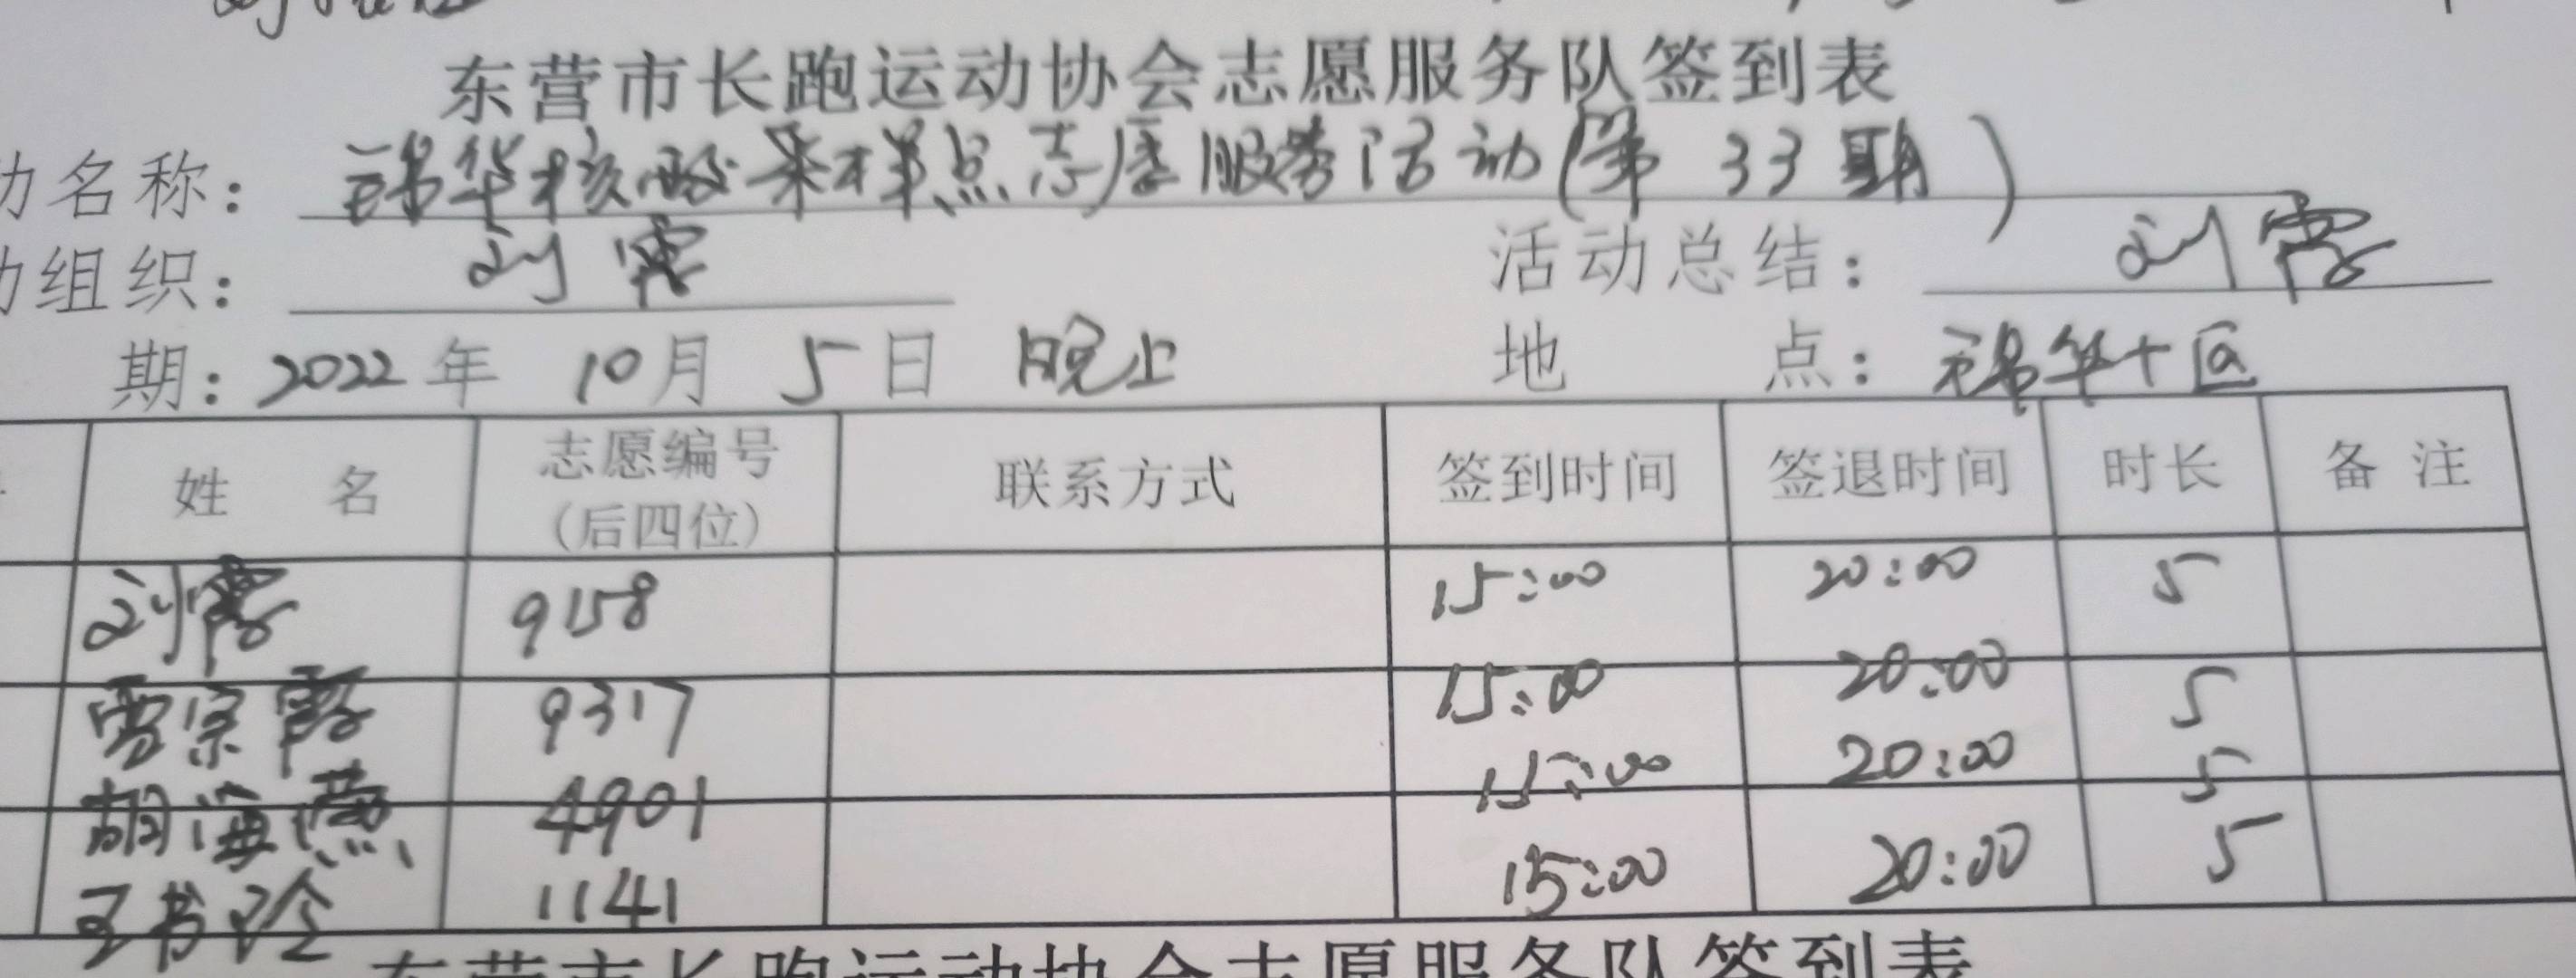 东营市长跑运动协会志愿服务队签到表
动名称：锦华核酸采样点志愿服务活动(第33期)
动组织：刘霞 活动总结：刘霞
期：2022年10月5日 晚上 地点：锦华十区
姓名 志愿编号(后四位) 联系方式 签到时间 签退时间 时长 备注
刘霞 9158 15:00 20:00 5
贾宗霞 9317 15:00 20:00 5
胡海燕 4901 15:00 20:00 5
王书玲 1141 15:00 20:00 5
东营市长跑运动协会志愿服务队签到表